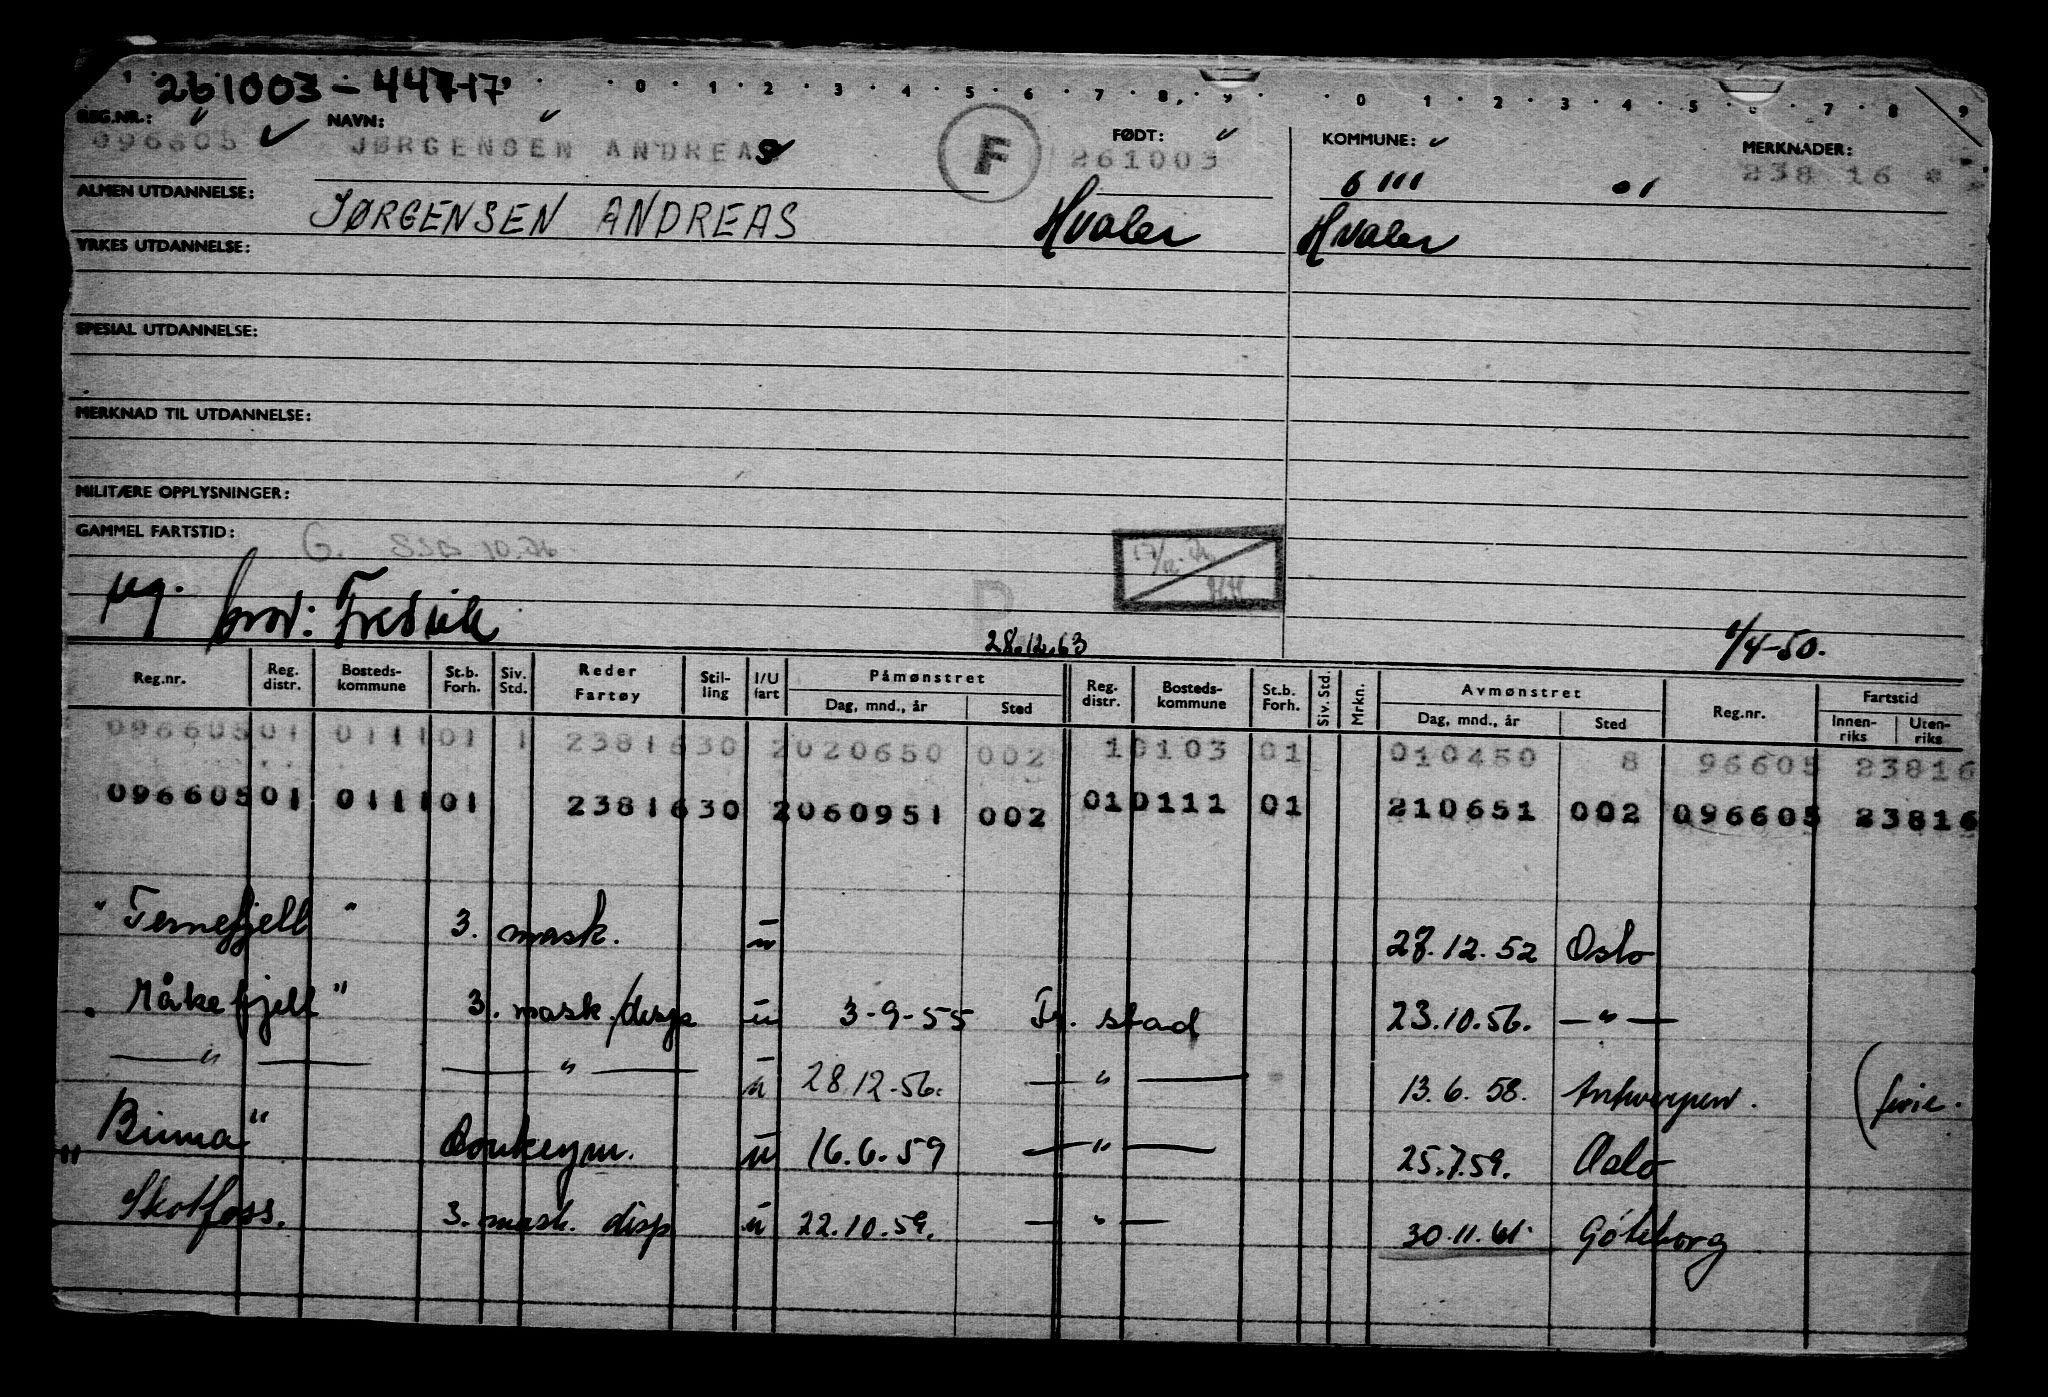 261003-44717
0 1 2 3 4 5 6 7 8 9 0 1 2 3 4 5 6 7 8 9
REG.NR.: NAVN: FØDT: KOMMUNE: MERKNADER:
096605 JØRGENSEN ANDREAS F 261003 0111 01 238 16
ALMEN UTDANNELSE: JØRGENSEN ANDREAS Hvaler Hvaler
YRKES UTDANNELSE:
SPESIAL UTDANNELSE:
MERKNAD TIL UTDANNELSE:
MILITÆRE OPPLYSNINGER:
GAMMEL FARTSTID: G.
P
prov: Fredrik 28.12.63 1/4-50.
Reg.nr. Reg. distr. Bosteds-kommune St.b. Forh. Siv. Std. Reder Fartøy Stil-ling I/U fart Påmønstret Reg. distr. Bosteds-kommune St.b. Forh. Siv. Std. Mrkn. Avmønstret Reg.nr. Fartstid
Dag, mnd., år Sted Dag, mnd., år Sted Innen-riks Uten-riks
096605 01 0111 01 1 23816 30 2 020650 002 1 0103 01 010450 8 96605 23816
096605 01 0111 01 23816 30 2 060951 002 01 0111 01 210651 002 096605 23816
"Ternefjell" 3. mask. u 27.12.52 Oslo
"Måkefjell" 3. mask./disp u 3-9-55 Fr.stad 23.10.56. — " —
— " — — " — u 28.12.56. — " — 13.6.58. Antwerpen. (ferie.
"Binna" Donkeym. u 16.6.59 — " — 25.7.59. Oslo
" Skotfoss. 3. mask. disp u 22.10.59. — " — 30.11.61. Göteborg